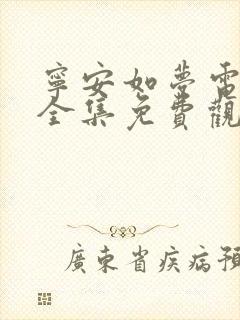 寧安如夢電
全集免費觀
廣東省疾病預